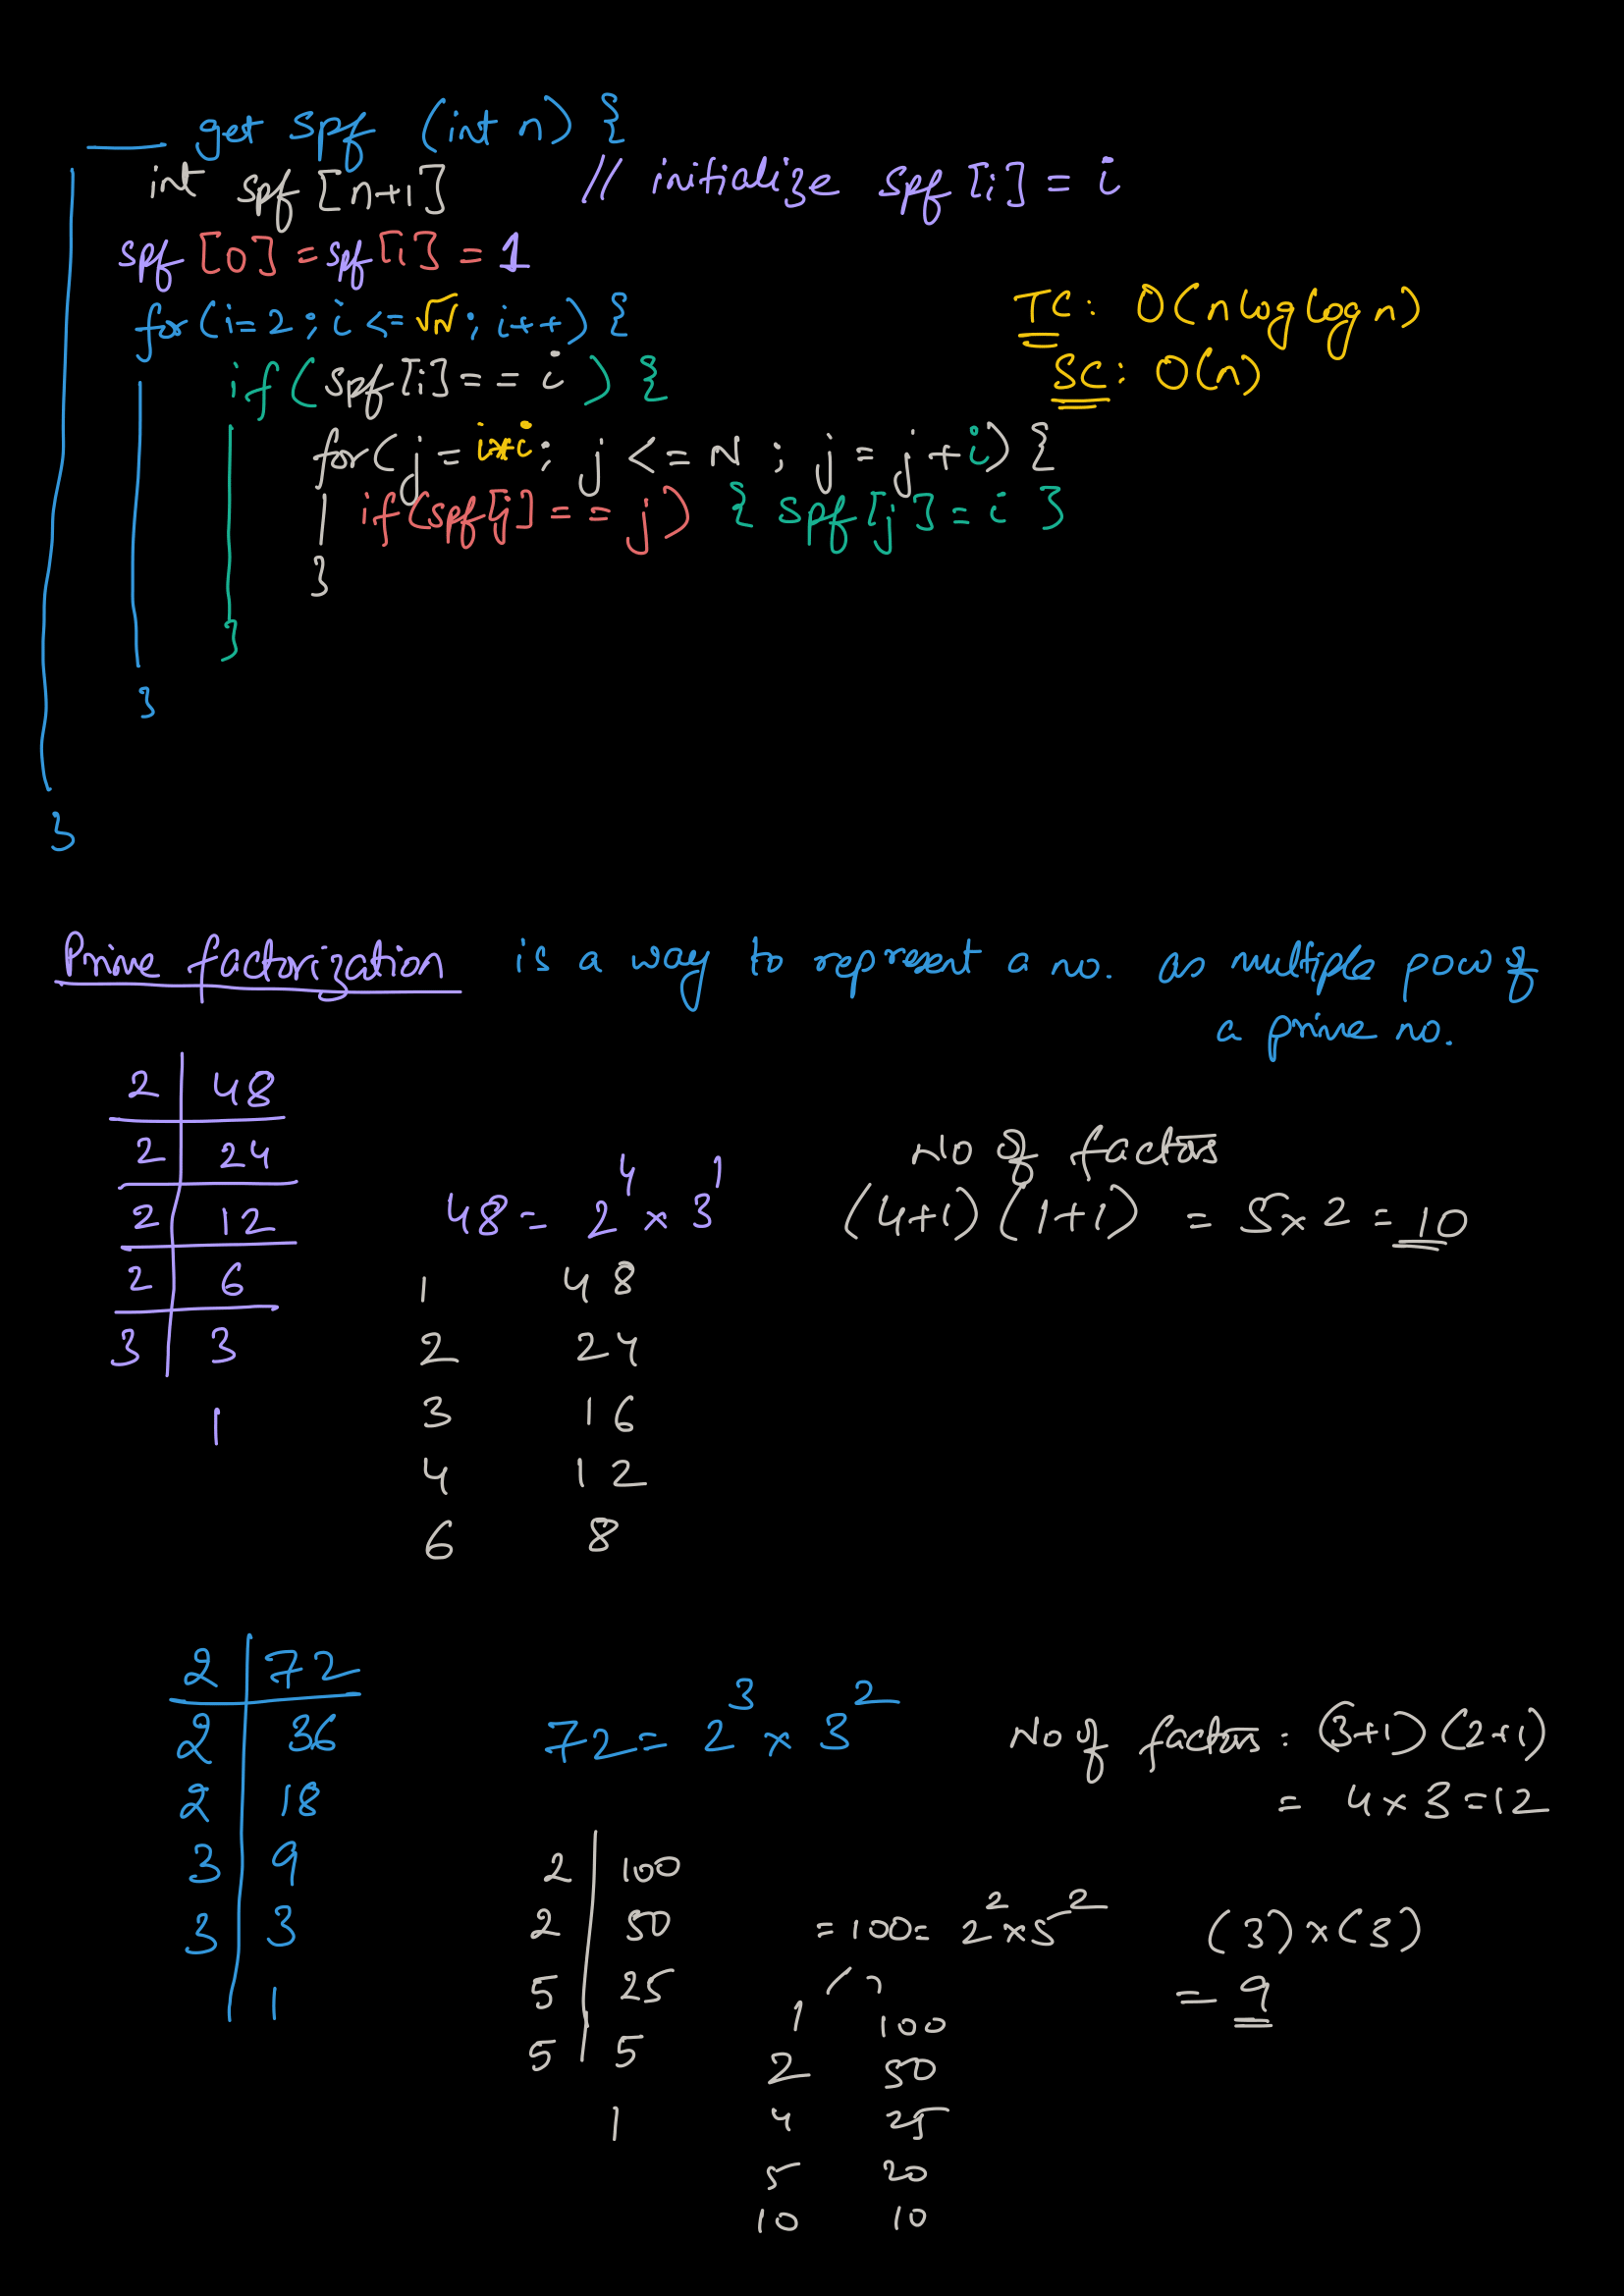 ___ get spf (int n) {
int spf [n+1] // initialize spf [i] = i
spf [0] = spf [i] = 1
for (i=2 ; i <= √N ; i++) {
TC: O(n log log n)
if ( spf [i] == i ) {
SC: O(n)
for ( j = i*i ; j <= N ; j = j + i ) {
if (spf[j] == j) { spf [j] = i }
}
}
}
}
Prime factorization is a way to represent a no. as multiple pow of
a prime no.
2 | 48
2 | 24
2 | 12
2 | 6
3 | 3
1
48 = 2^4 × 3^1
No of factors
(4+1) (1+1) = 5 × 2 = 10
1 48
2 24
3 16
4 12
6 8
2 | 72
2 | 36
2 | 18
3 | 9
3 | 3
1
72 = 2^3 × 3^2
No of factors : (3+1) (2+1)
= 4 × 3 = 12
2 | 100
2 | 50
5 | 25
5 | 5
1
= 100 = 2^2 × 5^2
(3) × (3)
= 9
1 100
2 50
4 25
5 20
10 10